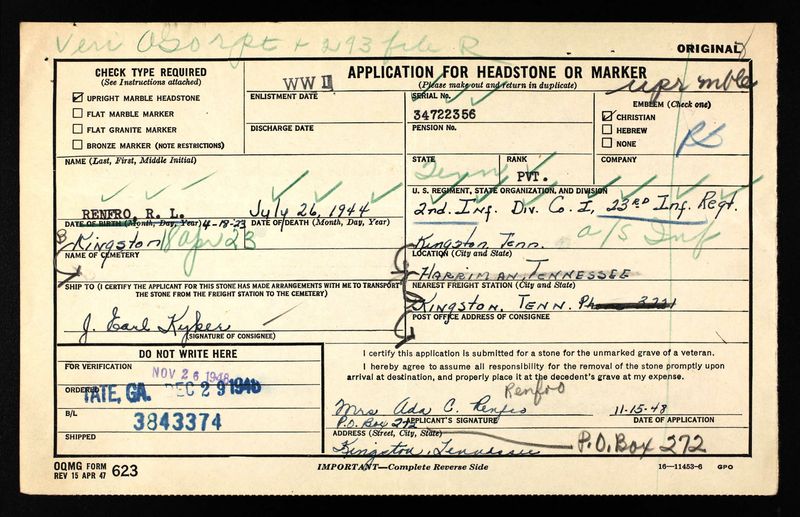 Veri
+ 293 file R
ORIGINAL
CHECK TYPE REQUIRED
(See Instructions attached)
WW II
APPLICATION FOR HEADSTONE OR MARKER
(Please make out and return in duplicate)
upr mble
☑ UPRIGHT MARBLE HEADSTONE
☐ FLAT MARBLE MARKER
☐ FLAT GRANITE MARKER
☐ BRONZE MARKER (NOTE RESTRICTIONS)
ENLISTMENT DATE
DISCHARGE DATE
SERIAL No.
34722356
PENSION No.
EMBLEM (Check one)
☑ CHRISTIAN
☐ HEBREW
☐ NONE
NAME (Last, First, Middle Initial)
STATE
Tenn
RANK
PVT.
COMPANY
RENFRO, R. L.
July 26, 1944
U. S. REGIMENT, STATE ORGANIZATION, AND DIVISION
2nd. Inf. Div. Co. I, 23RD Inf. Regt.
DATE OF BIRTH (Month, Day, Year) 4-18-23
DATE OF DEATH (Month, Day, Year)
a/s Inf
Kingston 18 Apr 23
NAME OF CEMETERY
Kingston, Tenn.
LOCATION (City and State)
HARRIMAN, TENNESSEE
NEAREST FREIGHT STATION (City and State)
SHIP TO (I CERTIFY THE APPLICANT FOR THIS STONE HAS MADE ARRANGEMENTS WITH ME TO TRANSPORT
THE STONE FROM THE FREIGHT STATION TO THE CEMETERY)
KINGSTON, TENN. Ph
POST OFFICE ADDRESS OF CONSIGNEE
J. Earl Kyker
(SIGNATURE OF CONSIGNEE)
DO NOT WRITE HERE
FOR VERIFICATION
NOV 26 1948
ORDERED
TATE, GA. DEC 29 1948
B/L
3843374
SHIPPED
I certify this application is submitted for a stone for the unmarked grave of a veteran.
I hereby agree to assume all responsibility for the removal of the stone promptly upon
arrival at destination, and properly place it at the decedent's grave at my expense.
Renfro
Mrs Ada C. Renfro
11-15-48
P.O. Box 272
APPLICANT'S SIGNATURE
DATE OF APPLICATION
ADDRESS (Street, City, State)
P.O. Box 272
Kingston, Tennessee
OQMG FORM
REV 15 APR 47
623
IMPORTANT—Complete Reverse Side
16—11453-6 GPO